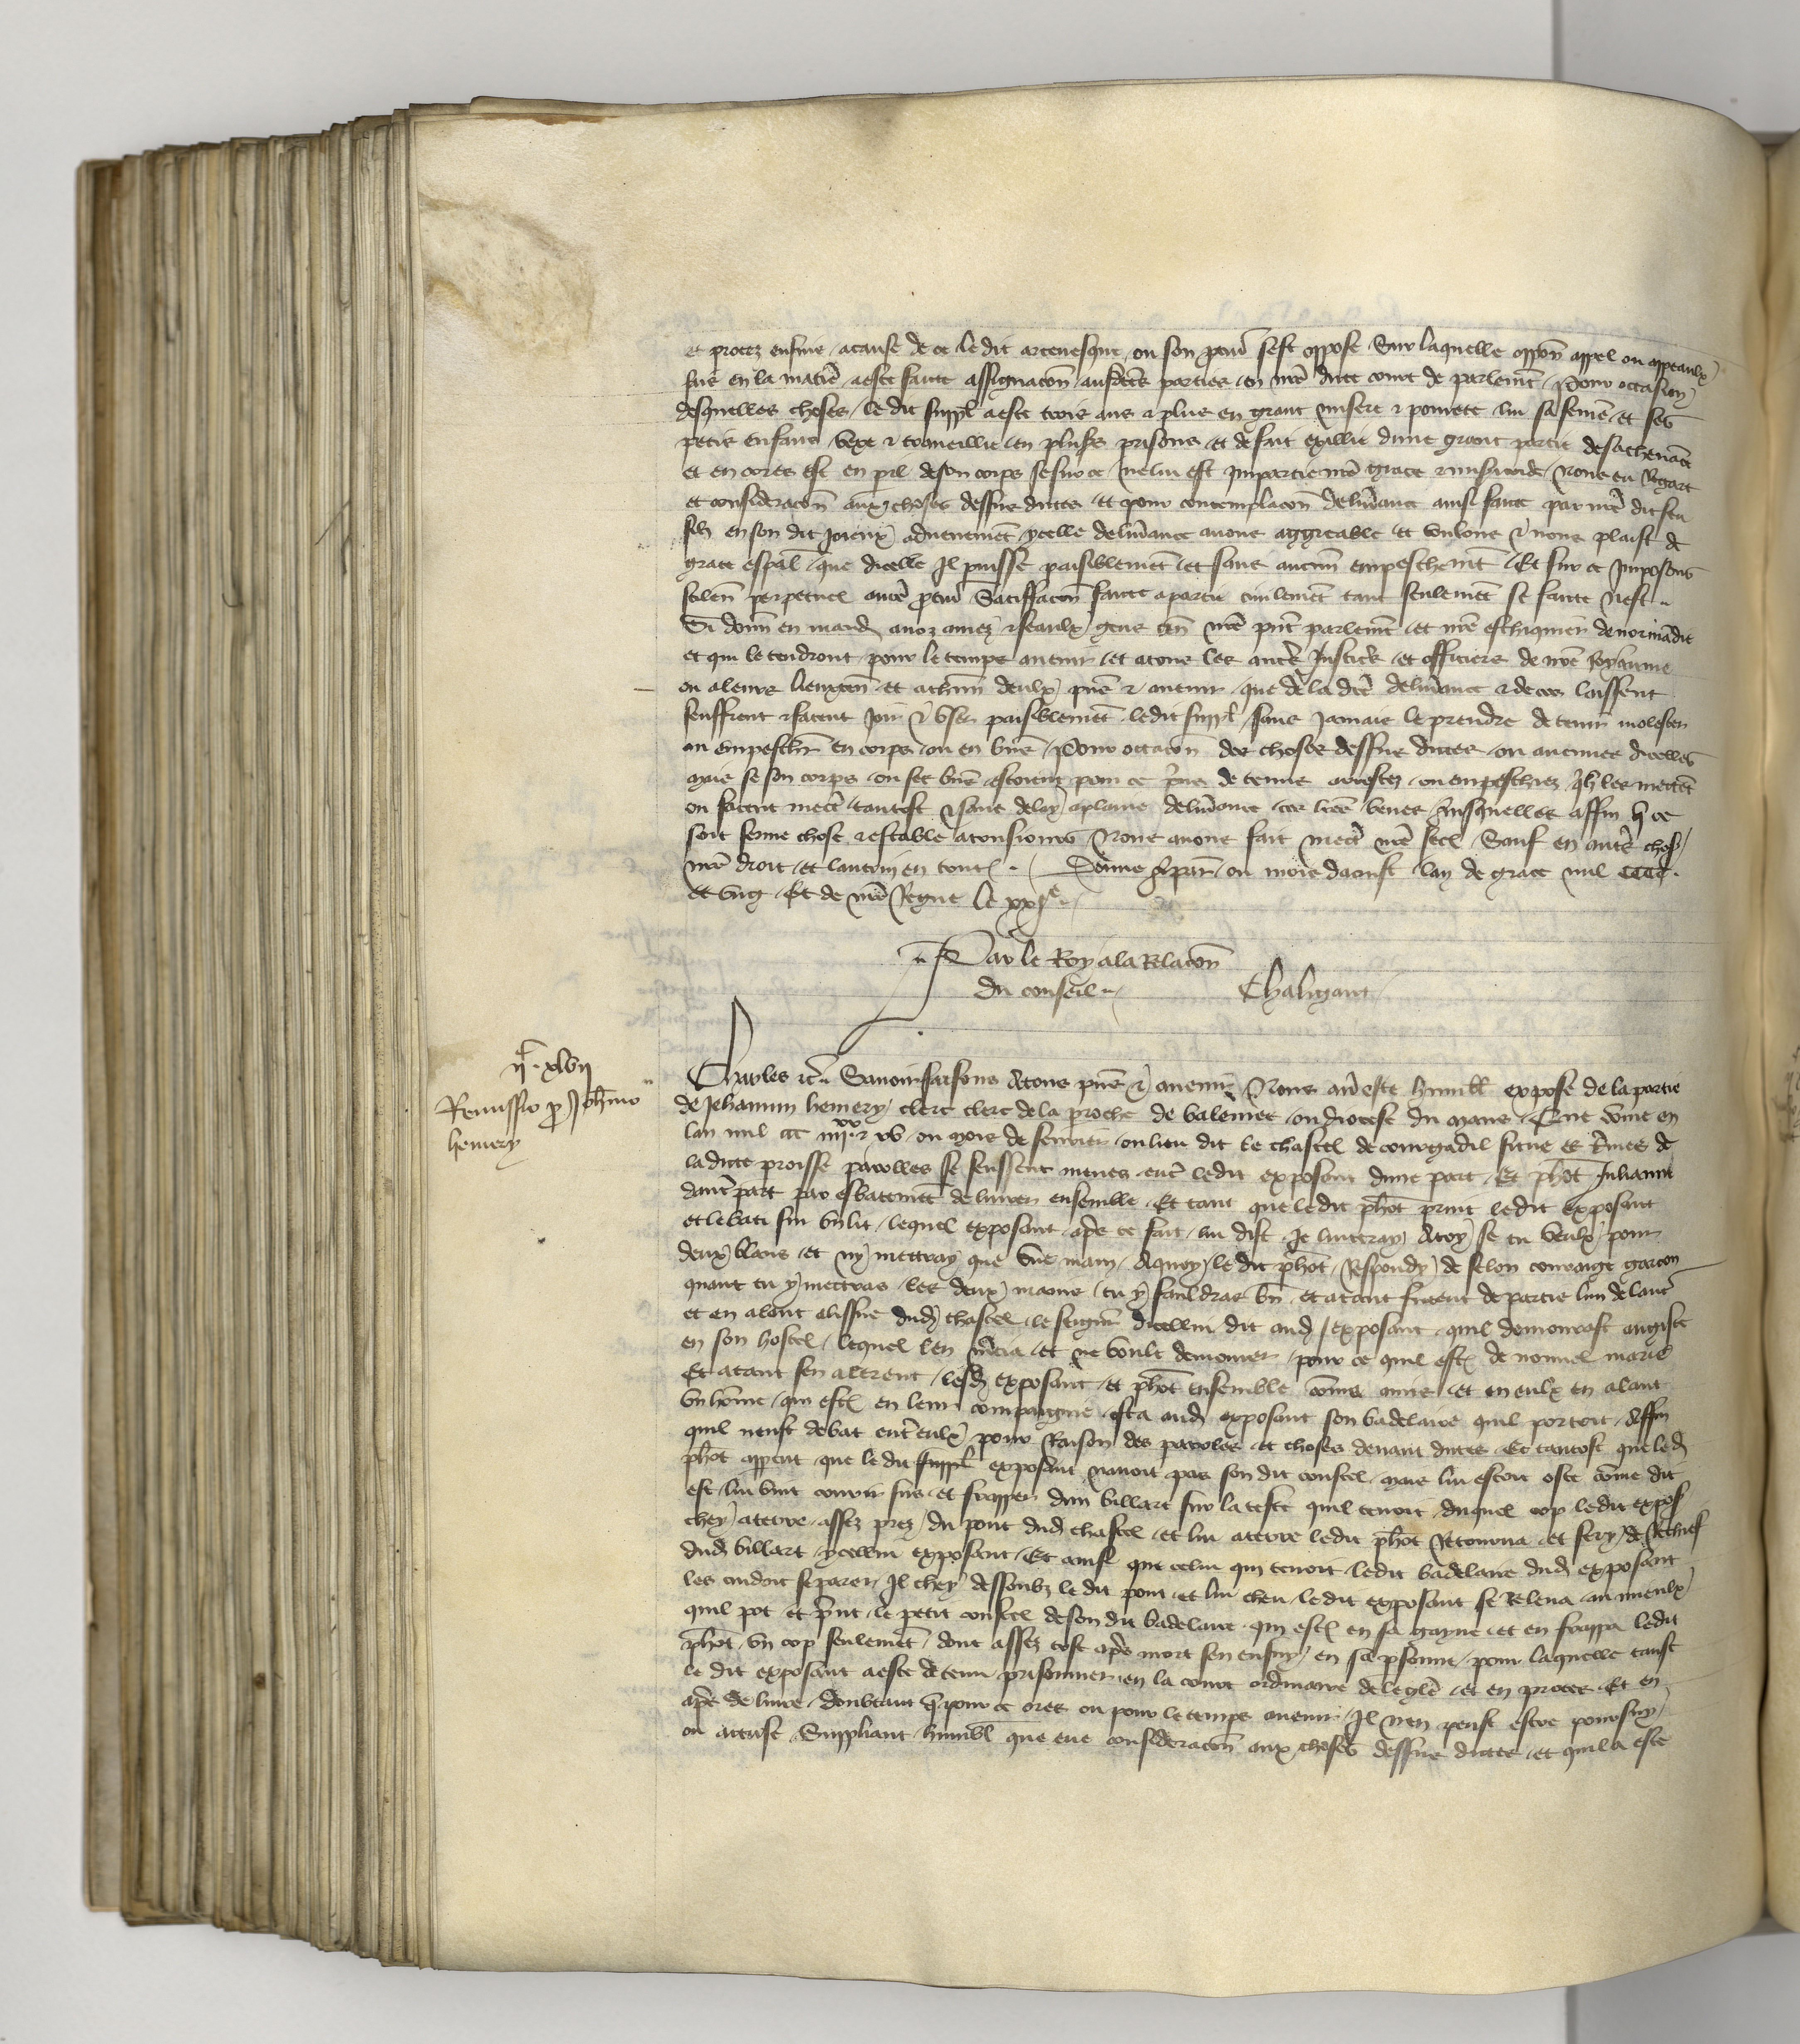 et procez ensuie a cause de ce ledit arcevesque ou son procur sest oppose Sur laquelle oppon appel ou appeaulx
sur en la matie a este faicte assignacon ausdctes parties en nre dicte court de parlemt Pour occasion
desquelles choses le dit suppl a este trois ans & plus en grant misere & povrete lui sa feme et ses
petis enfans vexe & traveillie en plusrs prisons et de fait exillie dune grant partie de sa chevance
et encores est en pil de son corps se sur ce ne lui est impartie nre grace & misericorde Nous eu Regart
et consideracon aux choses dessus dictes et pour contemplacon delivrance ainsi faicte par nre dit feu
filz en son dit joieux advenement ycelle delivrance avons aggreable et voulons & nous plaist de
grace espal que dicelle Il puisse paisiblement et sans aucun empeschemt Et sur ce Imposons
silen perpetuel a nre procur Satiffacon faicte a partie civilement tant seulement se faicte nest
Si donn en mand a noz amez & feaulx gens ten nre pnt parlemt et nre eschiquier de normadie
et qui le tendront pour le temps avenir et a tous les autrs Justicrs et officiers de nre Royaume
ou a leurs lieuxten et a chun deulx pns & avenir que de la dce delivrance & de ces laissent
seuffrent & facent joir & user paisiblement ledit suppl sans jamais le prendre detenir molester
ou empescher en corps ou en biens Pour occacon des choses dessus dictes ou aucunes dicelles
mais se son corps ou ses biens estoient pour ce prins detenus arrestez ou empeschiez qlz les mettent
ou facent mectre tantost & sans delay a plaine delivrance ces lres veues Ausquelles affin q ce
soit ferme chose & estable a tousiours Nous avons fait mectre nre seel Sauf en autrs choses
nre droit et lautruy en toutes Donne a par ou mois daoust lan de grace mil cccc
et ung Et de nre Regne le xxje
Par le Roy a la Relacon
du conseil Chaligaut
ijc xlvij
Remissio pro Johanno
hemery
Charles &c Savoir faisons A tous pns & avenir Nous avoir este humblt expose de la partie
de Jehannin hemery clerc clerc de la proche de balemes ou diocese du mans Que come en
lan mil ccc iiijxx & xv ou mois de fevrier ou lieu dit le chastel de courgadil situe es termes de
ladicte proisse parolles se feussent meues entre ledit exposant dune part Et phot Julianni
dautre part par esbatement de luiter ensemble Et tant que ledit phot print ledit exposant
et lebati sur un lit lequel exposant apres ce fait lui dist Je luitteray A toy se tu veulx pour
deux blans et ny mettray que une main A quoy le dit phot Respondy de felon couraige garcon
quant tu y mettras les deux mains tu y fauldras bn et atant furent departis lun de lautre
et en alant a lissue dud chastel le seigneur dicellui dit aud exposant quil demourast au giste
en son hostel lequel len mercia et ne voult demourer pour ce quil estoit de nouvel marie
Et atant sen alerent lesd exposant et phot ensemble come amis et en eulx en alant
un home qui estoit en leur compaignie osta aud exposant son badelaire quil portoit Affin
quil neust debat entre eulx pour Raison des paroles et choses devant dictes Et tantost que led
phot apperceut que ledit suppl exposant navoit pas son dit coustel mais lui estoit oste come dit
est lui vint courir sus et frapper dun billart sur la teste quil tenoit duquel cop ledit expos
chey a terre assez prez du pont dud chastel et lui a terre ledit phot Retourna et fery de Rechief
dud billart ycellui exposant Et ainsi que celui qui tenoit ledit badelaire dud exposant
les cudoit separer Il chey dessoubz le dit pont et lui cheu ledit exposant se Releva au mieulx
quil pot et print le petit coustel de son dit badelaire qui estoit en sa gayne et en frappa ledit
phot un cop seulement dont assez tost apres mort sen ensuy en sa personne pour laquelle cause
le dit exposant a este detenu prisonnier en la court ordinaire de leglise et en proces Et en
apres delivre doubtant que pour ce ores ou pour le temps avenir Il nen peust estre poursuy
ou accuse Suppliant humbl que eue consideracon aux choses dessus dictes et quil a este